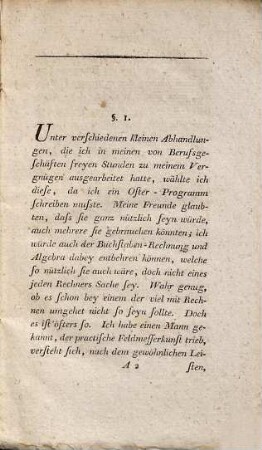 §. 1.
Unter verschiedenen kleinen Abhandlun-
gen, die ich in meinen von Berufsge-
schäften freyen Stunden zu meinem Ver-
gnügen ausgearbeitet hatte, wählte ich
diese, da ich ein Oster-Programm
schreiben musste. Meine Freunde glaub-
ten, dass sie ganz nützlich seyn würde,
auch mehrere sie gebrauchen könnten; ich
würde auch der Buchstaben-Rechnung und
Algebra dabey entbehren können, welche
so nützlich sie auch wäre, doch nicht eines
jeden Rechners Sache sey. Wahr genug,
ob es schon bey einem der viel mit Rech-
nen umgehet nicht so seyn sollte. Doch
es ist öfters so. Ich habe einen Mann ge-
kannt, der practische Feldmesserkunst trieb,
versteht sich, nach dem gewöhnlichen Lei-
A 2 sten,